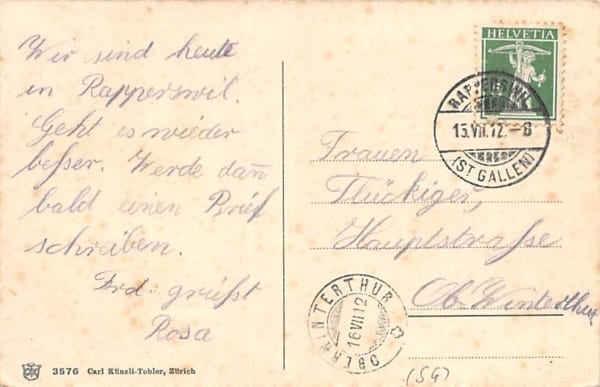 Wir sind heute
in Rapperswil.
Geht es wieder
besser. Werde dan̄
bald einen Brief
schreiben.
Frd. grüsst
Rosa
HELVETIA
RAPPERSWIL
15.VII.12.-8
(ST GALLEN)
Frauen
Flückiger,
Hauptstrasse
Ob-Winterthur
OBERWINTERTHUR
16VII12
(SG)
3576 Carl Künzli-Tobler, Zürich